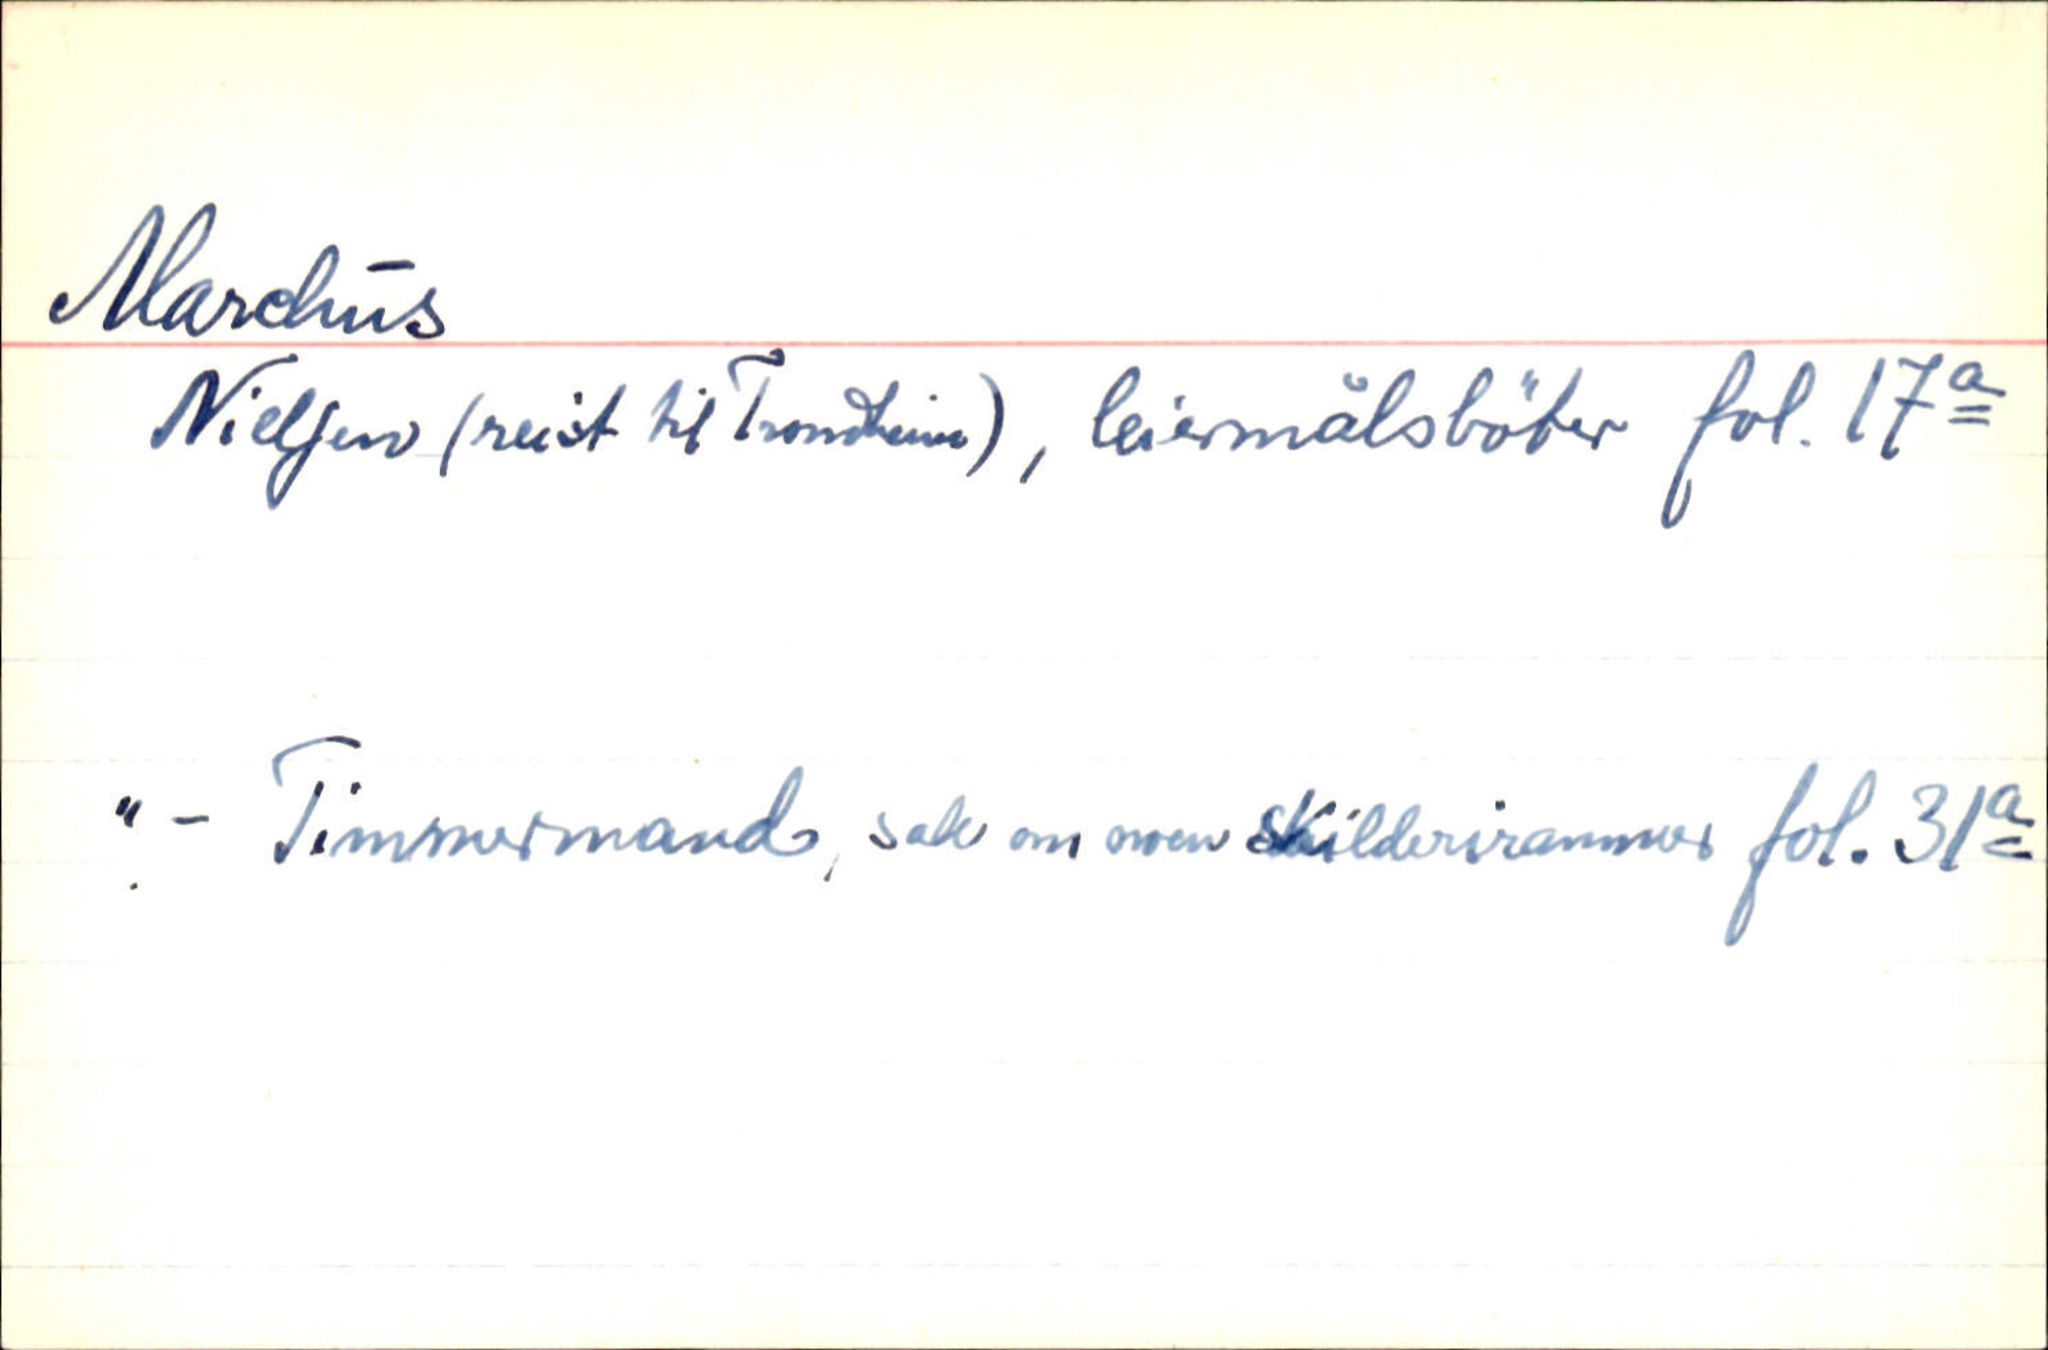 Marchūs
Nielsen (reist til Trondheim), leiermålsböter fol. 17a
" - Timmermand, sak om noen skilderirammer fol. 31a